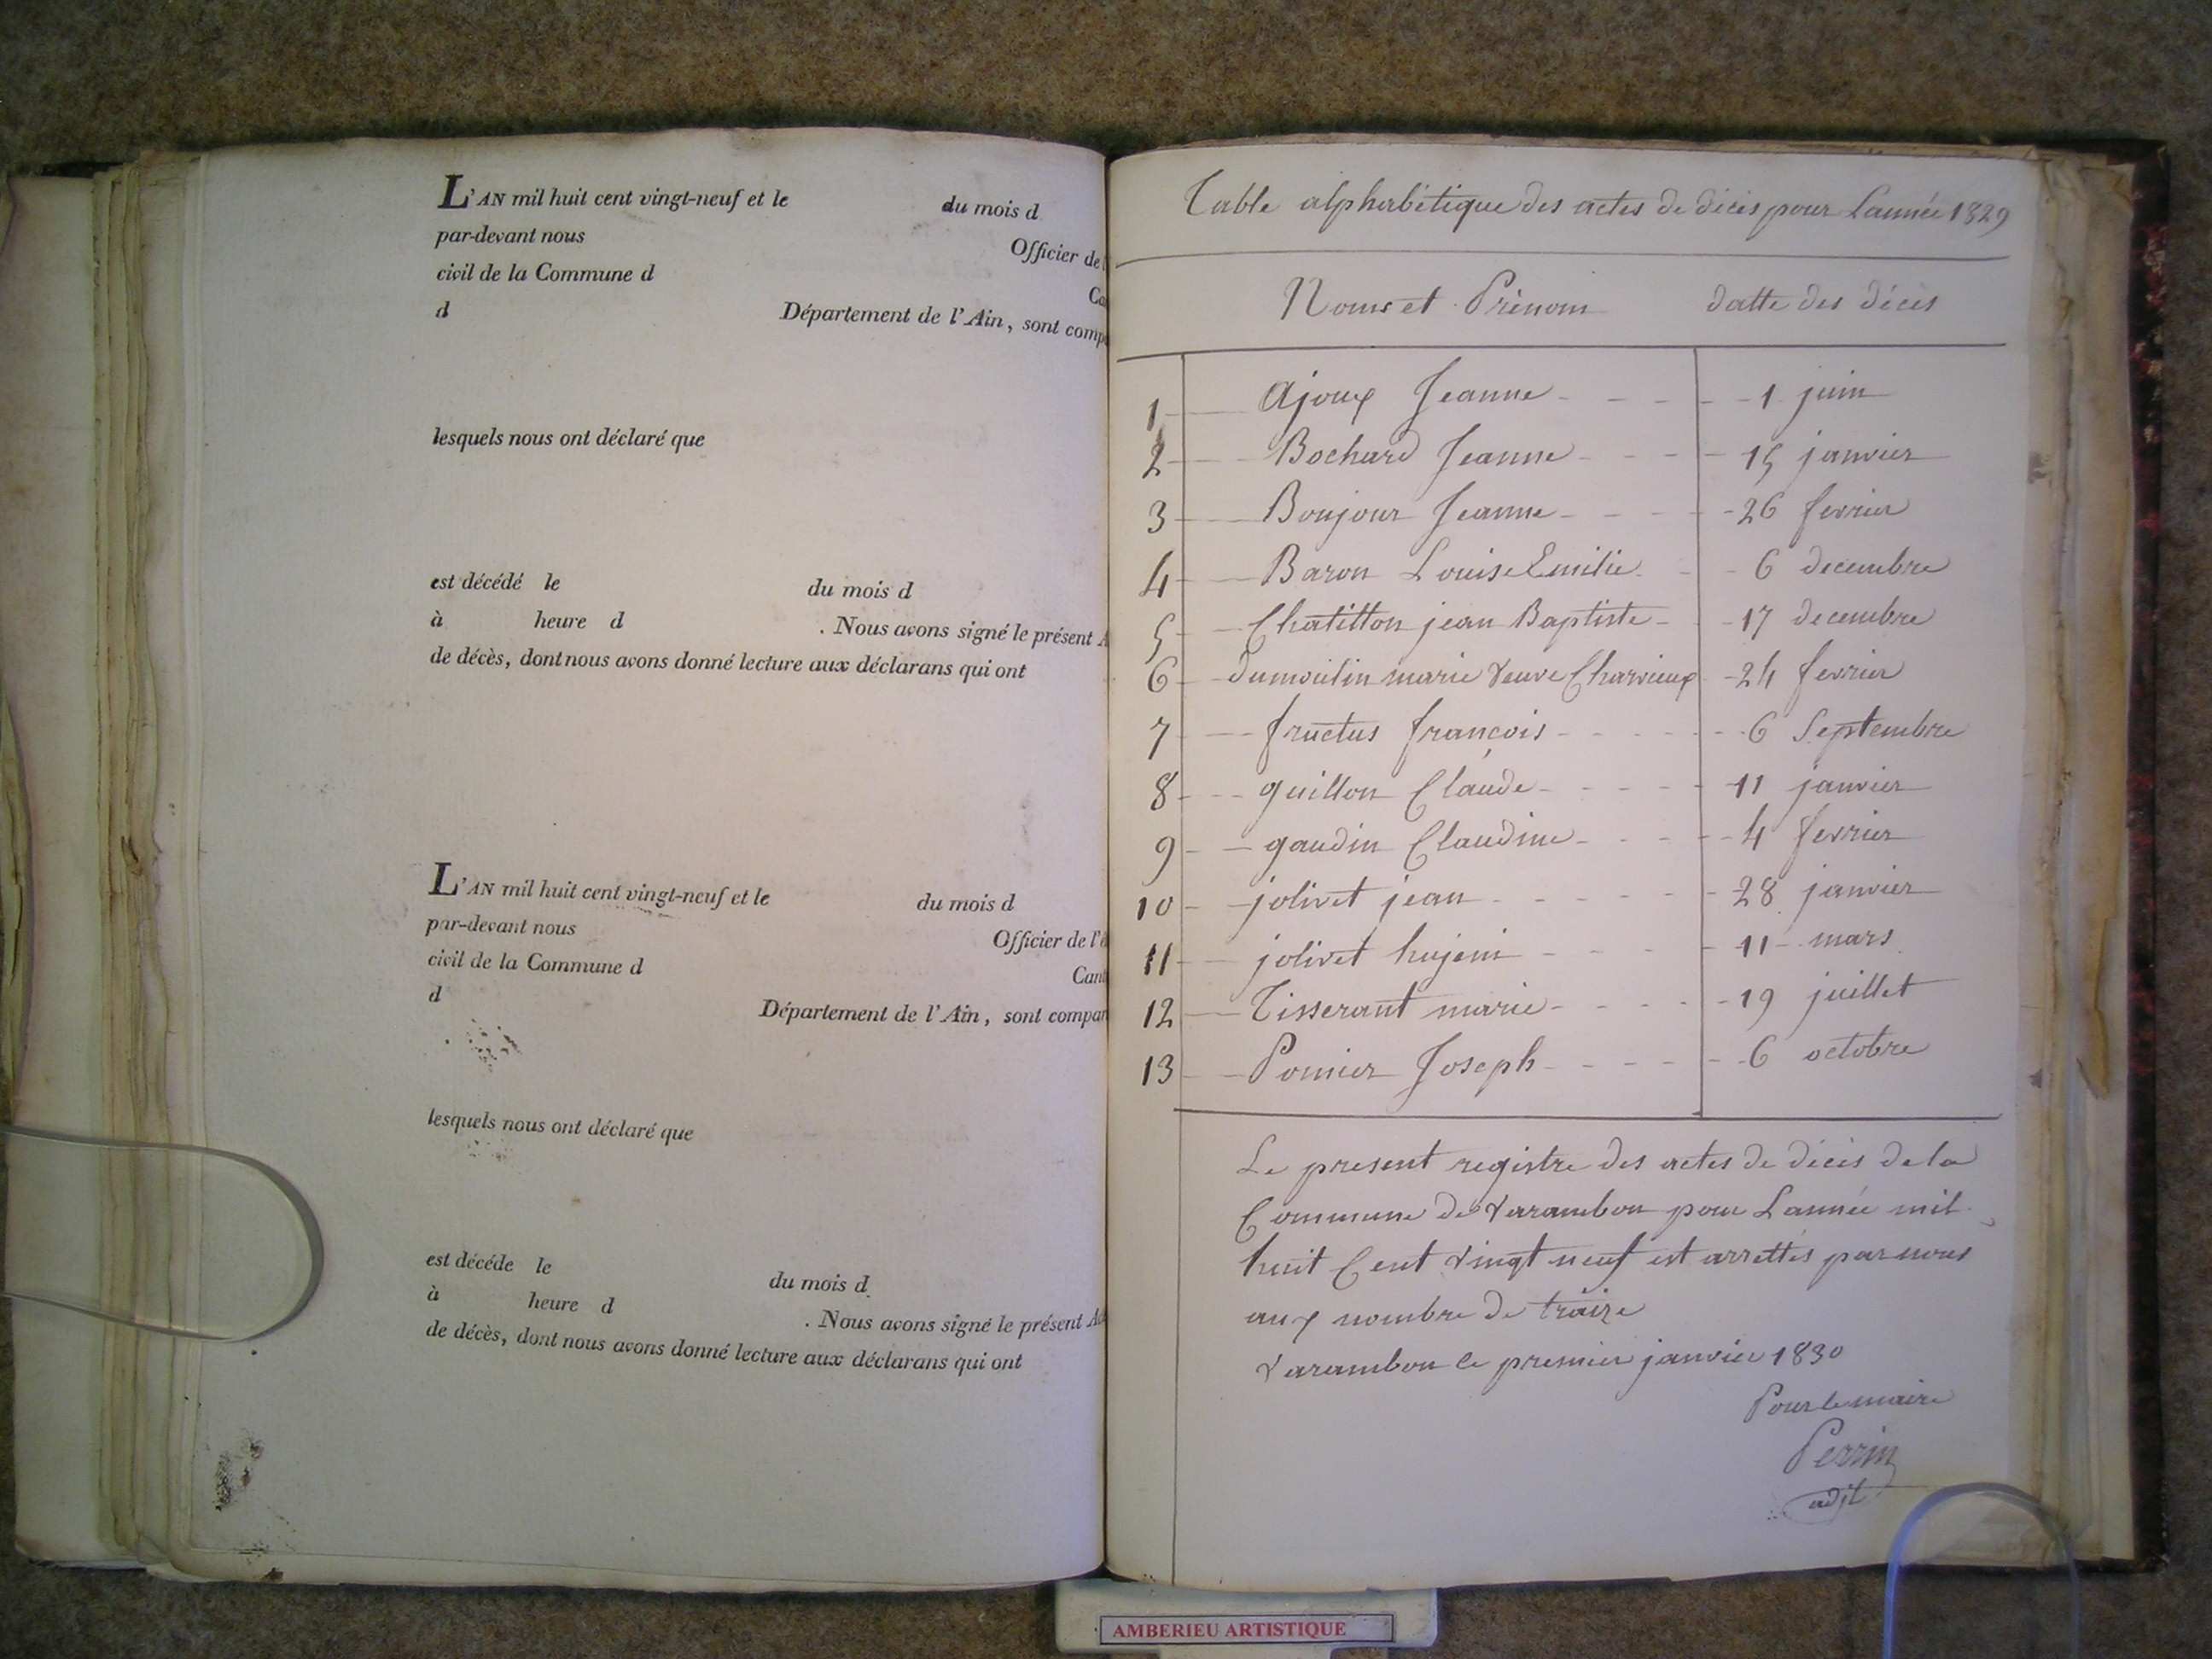 L'AN mil huit cent vingt-neuf et le du mois d
par-devant nous Officier de l
civil de la Commune d Ca
d Département de l'Ain, sont comp
lesquels nous ont déclaré que
est décédé le du mois d
à heure d . Nous avons signé le présent A
de décès, dont nous avons donné lecture aux déclarans qui ont
L'AN mil huit cent vingt-neuf et le du mois d
par-devant nous Officier de l'é
civil de la Commune d Cant
d Département de l'Ain, sont compar
lesquels nous ont déclaré que
est décédé le du mois d
à heure d . Nous avons signé le présent Ac
de décès, dont nous avons donné lecture aux déclarans qui ont
Table alphabétique des actes de décès pour Lannée 1829
Noms et Prénom datte des décès
1 Ajoux Jeanne 1 juin
2 Bochard Jeanne 15 janvier
3 Boujour Jeanne 26 fevrier
4 Baron Louise Emilie 6 decembre
5 Chatillon jean Baptiste 17 decembre
6 dumoulin marie veuve Charvieux 24 fevrier
7 fructus françois 6 Septembre
8 guillon Claude 11 janvier
9 gaudin Claudine 4 fevrier
10 jolivet jean 28 janvier
11 jolivet hujeni 11 mars
12 Tisserant marie 19 juillet
13 Pomier Joseph 6 octobre
Le present registre des actes de décès de la
Commune de Varambon pour Lannée mil
huit Cent vingt neuf est arrettés par nous
aux nombre de traize
Varambon le premier janvier 1830
Pour le maire
Perrin
adjt
AMBERIEU ARTISTIQUE